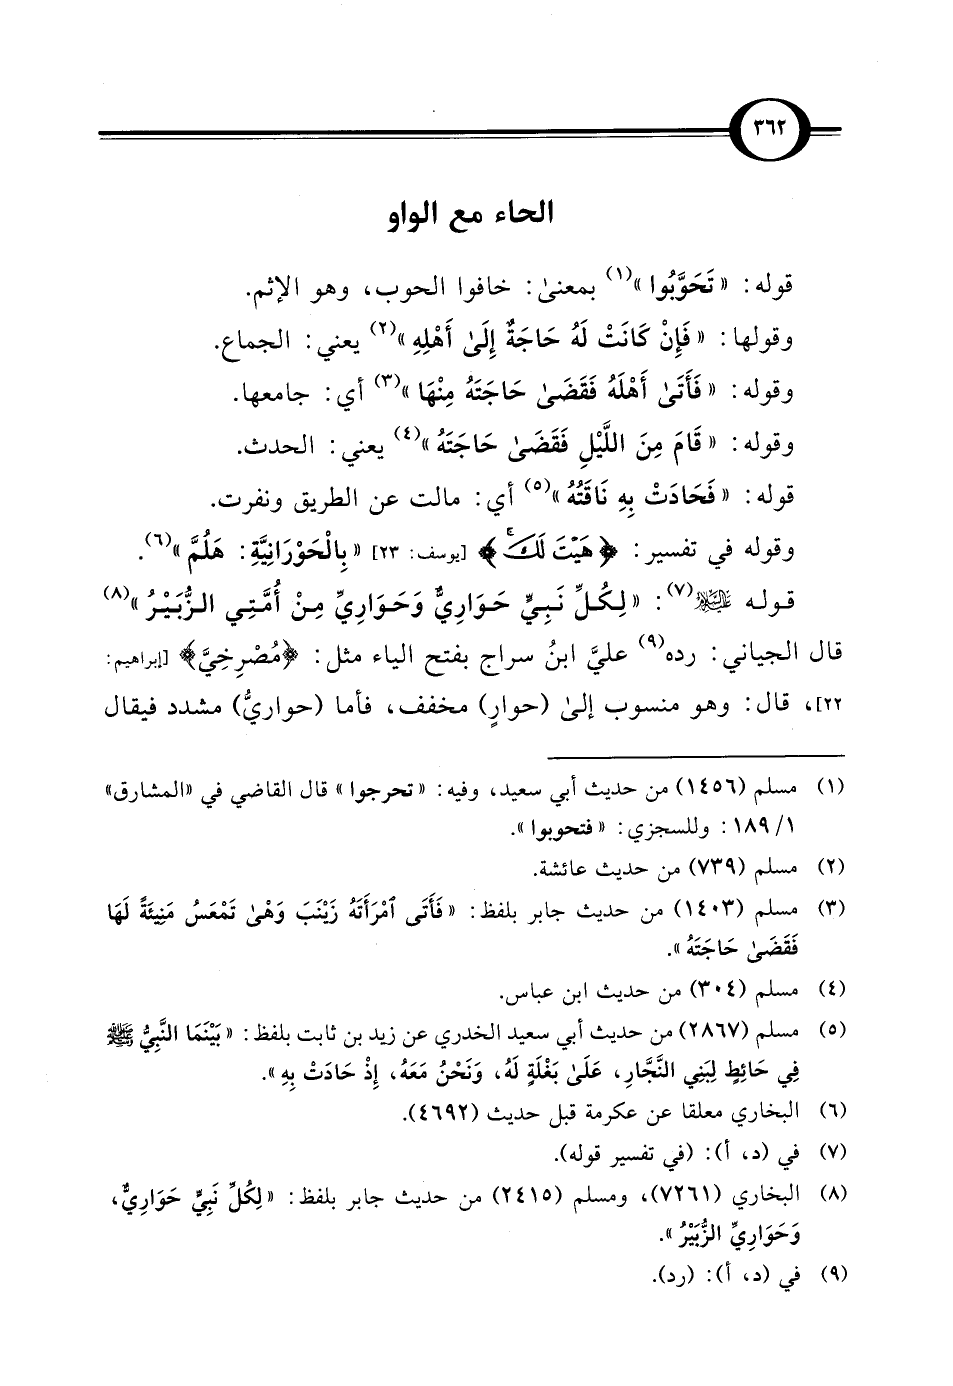 ٣٦٢
الحاء مع الواو
قوله: «تَحَوَّبُوا»(١) بمعنىٰ: خافوا الحوب، وهو الإثم.
وقولها: «فَإِنْ كَانَتْ لَهُ حَاجَةٌ إِلَىٰ أَهْلِهِ»(٢) يعني: الجماع.
وقوله: «فَأَتَىٰ أَهْلَهُ فَقَضَىٰ حَاجَتَهُ مِنْهَا»(٣) أي: جامعها.
وقوله: «قَامَ مِنَ اللَّيْلِ فَقَضَىٰ حَاجَتَهُ»(٤) يعني: الحدث.
قوله: «فَحَادَتْ بِهِ نَاقَتُهُ»(٥) أي: مالت عن الطريق ونفرت.
وقوله في تفسير: ﴿هَيْتَ لَكَۚ﴾ [يوسف: ٢٣] «بِالْحَوْرَانِيَّةِ: هَلُمَّ»(٦).
قوله عليه السلام(٧): «لِكُلِّ نَبِيٍّ حَوَارِيٌّ وَحَوَارِيِّ مِنْ أُمَّتِي الزُّبَيْرُ»(٨)
قال الجياني: رده(٩) عليَّ ابنُ سراج بفتح الياء مثل: ﴿مُصْرِخِيَّ﴾ [إبراهيم:
٢٢]، قال: وهو منسوب إلىٰ (حوارٍ) مخفف، فأما (حواريُّ) مشدد فيقال
(١) مسلم (١٤٥٦) من حديث أبي سعيد، وفيه: «تحرجوا» قال القاضي في «المشارق»
١/ ١٨٩: وللسجزي: «فتحوبوا».
(٢) مسلم (٧٣٩) من حديث عائشة.
(٣) مسلم (١٤٠٣) من حديث جابر بلفظ: «فَأَتَى ٱمْرَأَتَهُ زَيْنَبَ وَهْىَ تَمْعَسُ مَنِيئَةً لَهَا
فَقَضَىٰ حَاجَتَهُ».
(٤) مسلم (٣٠٤) من حديث ابن عباس.
(٥) مسلم (٢٨٦٧) من حديث أبي سعيد الخدري عن زيد بن ثابت بلفظ: «بَيْنَمَا النَّبِيُّ ﷺ
فِي حَائِطٍ لِبَنِي النَّجَّارِ، عَلَىٰ بَغْلَةٍ لَهُ، وَنَحْنُ مَعَهُ، إِذْ حَادَتْ بِهِ».
(٦) البخاري معلقا عن عكرمة قبل حديث (٤٦٩٢).
(٧) في (د، أ): (في تفسير قوله).
(٨) البخاري (٧٢٦١)، ومسلم (٢٤١٥) من حديث جابر بلفظ: «لِكُلِّ نَبِيٍّ حَوَارِيٌّ،
وَحَوَارِيِّ الزُّبَيْرُ».
(٩) في (د، أ): (رد).